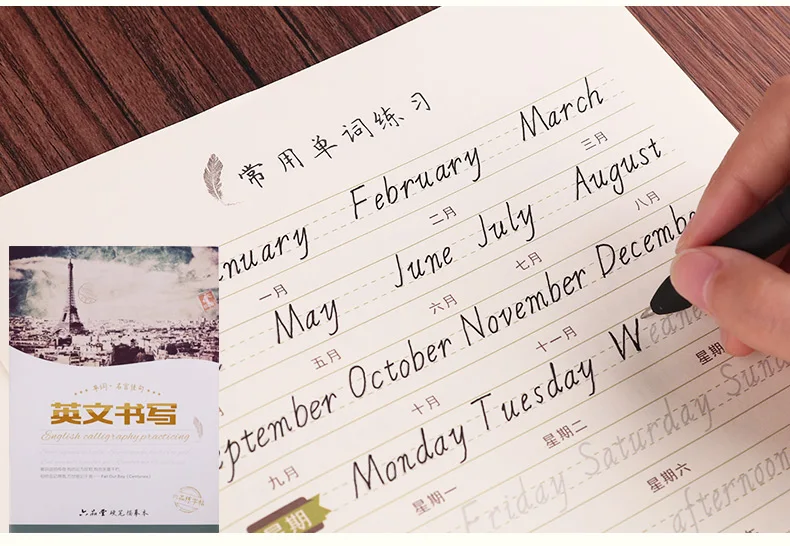 常用单词练习
nuary February March
一月 二月 三月
May June July August
五月 六月 七月 八月
ptember October November Decembe
九月 十月 十一月
Monday Tuesday W
星期 星期二 星期
星期一 Friday Saturday Sun
星期六
afternoon
单词·名言佳句
英文书写
English calligraphy practicing
六品堂 硬笔临摹本